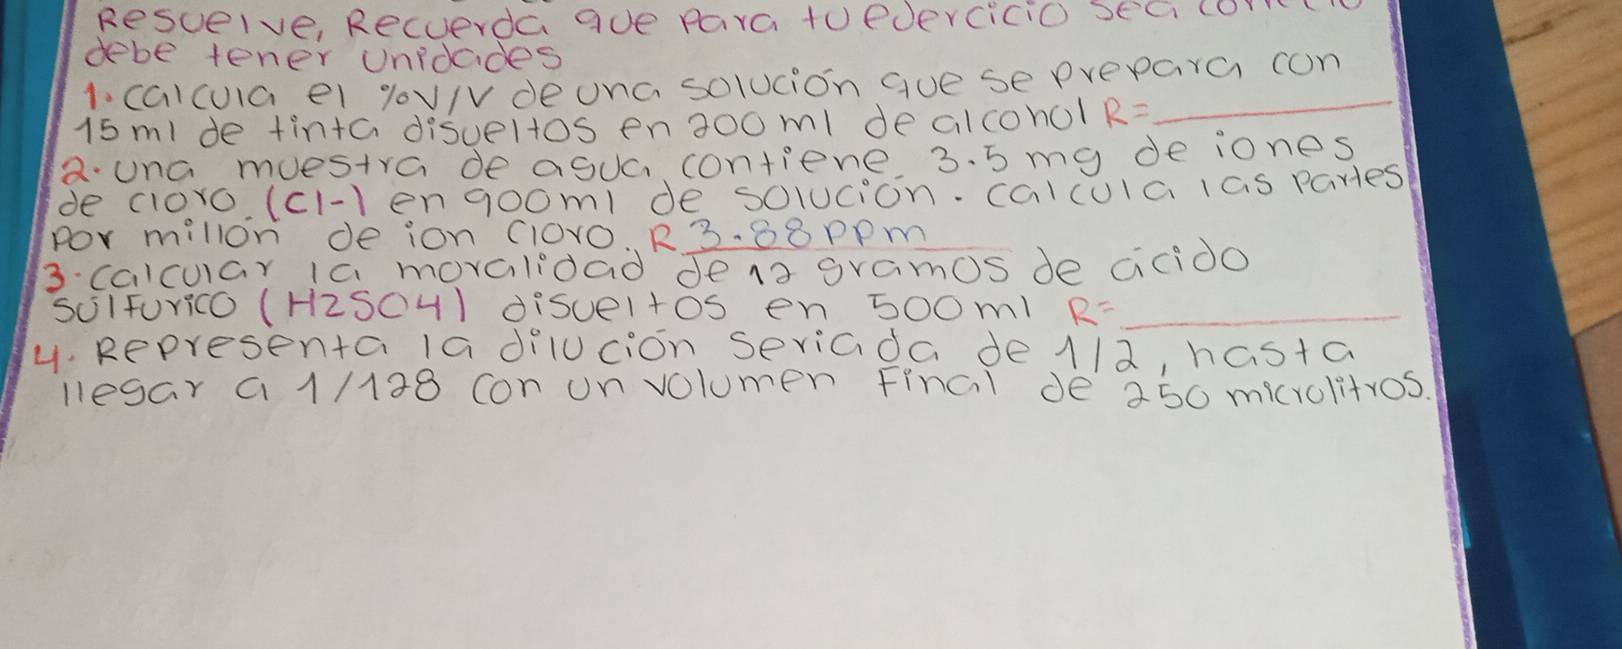 Resuelve, Recuerda que para tu ejercicio sea
debe tener unidades
1. calcula el %V/V de una solución que se prepara con
15 ml de tinta disueltos en 200 ml de alcohol R=
2. una muestra de agua contiene 3.5 mg de iones
de cloro (Cl-) en 900 ml de solución. calcula las partes
por millón de ion cloro. R 3.88 ppm
3. calcular la moralidad de 12 gramos de ácido
sulfurico (H2SO4) disueltos en 500 ml R=
4. Representa la dilución seriada de 1/2, hasta
llegar a 1/128 con un volumen Final de 250 microlitros.